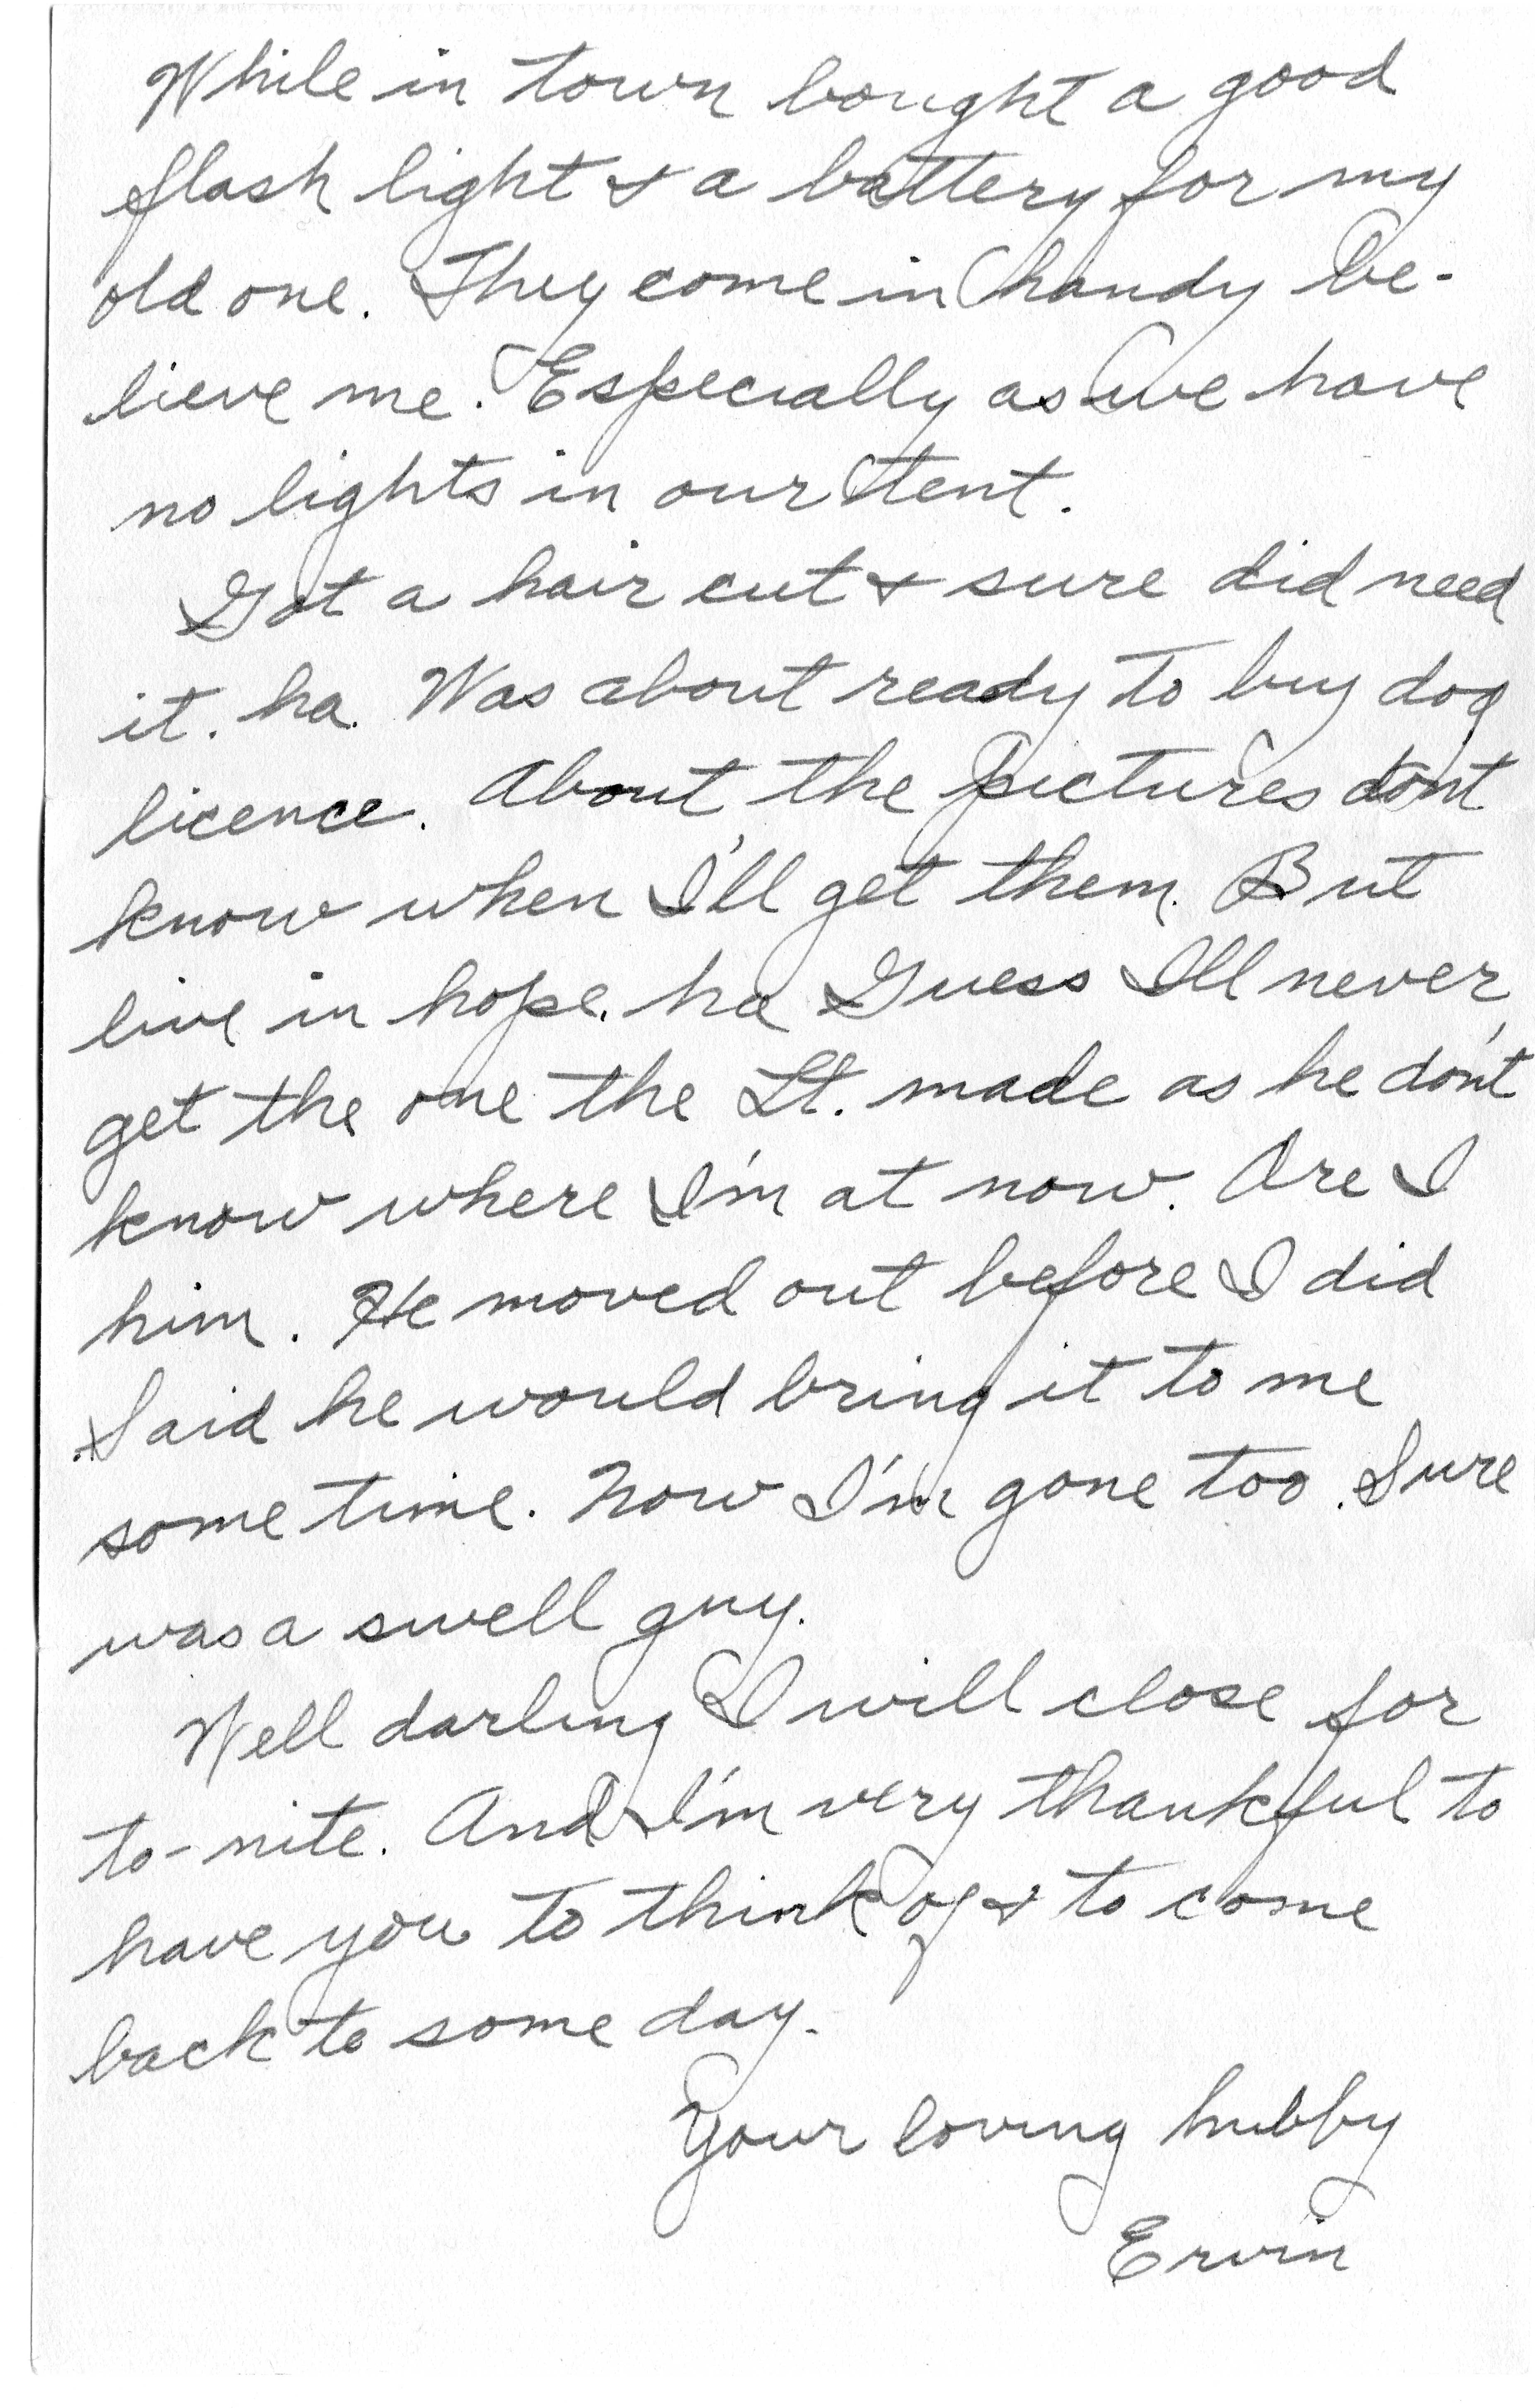 While in town bought a good
flash light & a battery for my
old one. They come in handy be-
lieve me. Especially as we have
no lights in our tent.
Got a hair cut & sure did need
it. ha. Was about ready to buy dog
licence. About the pictures don't
know when I'll get them. But
live in hope. ha Guess I'll never
get the one the Lt. made as he don't
know where I'm at now. Ore I
him. He moved out before I did
Said he would bring it to me
some time. Now I'm gone too. Sure
was a swell guy.
Well darling I will close for
to-nite. And I'm very thankful to
have you to think of & to come
back to some day.
Your loving hubby
Ervin